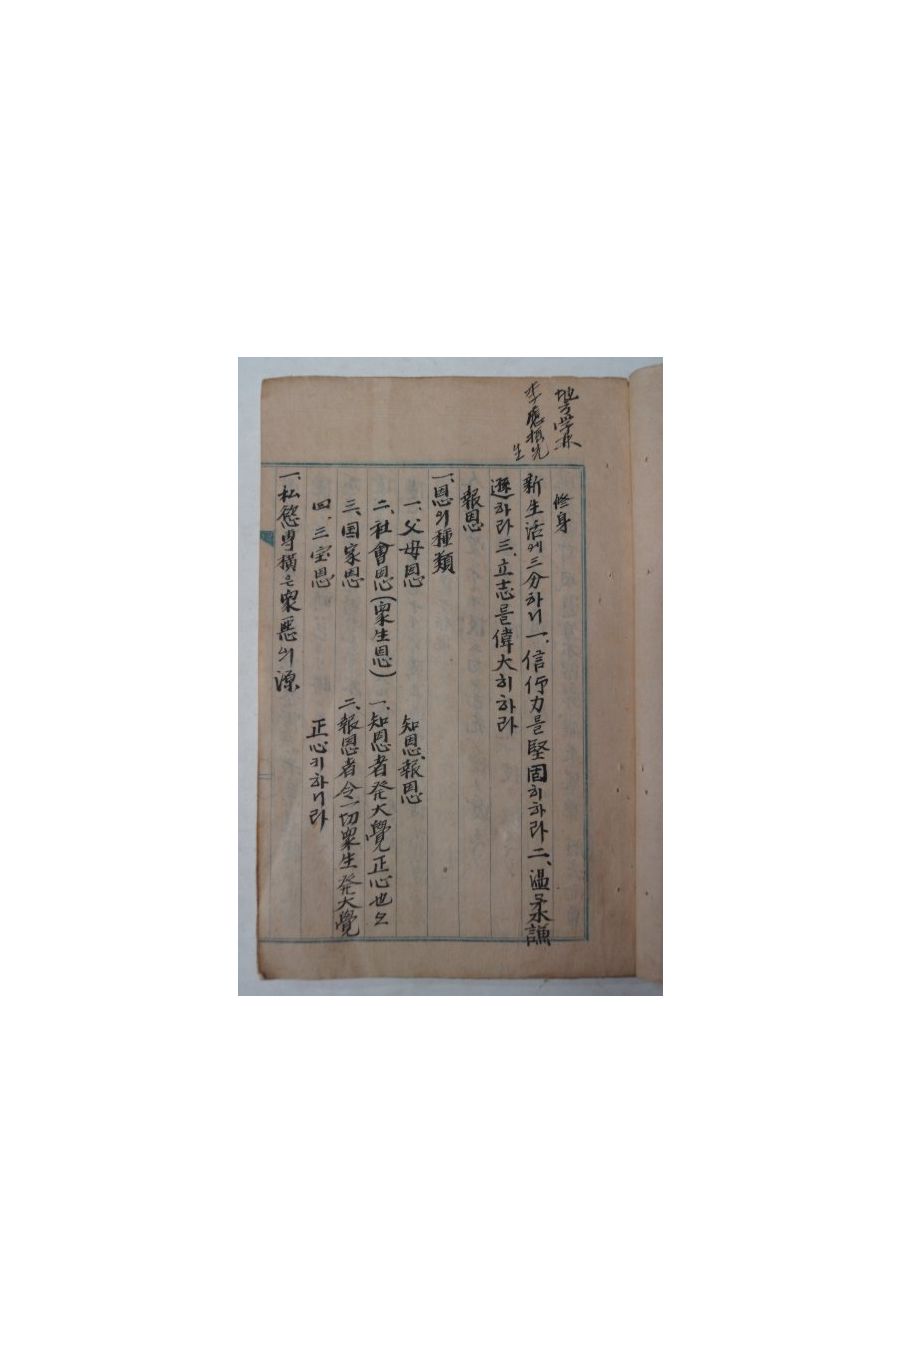 地方學林
李應招先
生
修身
新生活에三分하니一、信仰力를堅固히하라二、温柔謙
遜하라三、立志를偉大히하라
報恩
一、恩의種類
一、父母恩
知恩、報恩
二、社會恩(衆生恩)
一、知恩者発大覺正心也요
三、国家恩
二、報恩者令一切衆生発大覺
四、三宝恩
正心키하니라
一、私慾専橫은衆惡의源